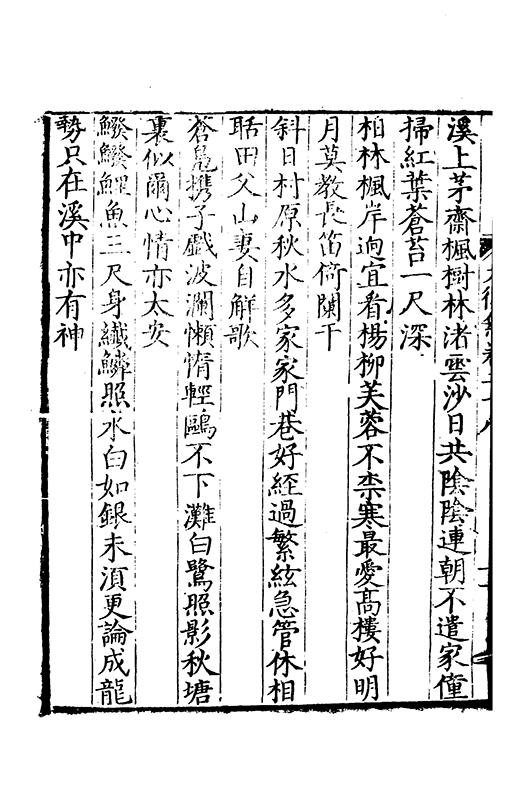 溪上茅齋楓樹林渚雲沙日共陰陰連朝不遣家僮
掃紅葉蒼苔一尺深
柏林楓岸逈宜看楊柳芙蓉不柰寒最愛高樓好明
月莫教長笛倚闌干
斜日村原秋水多家家門巷好經過繁絃急管休相
聒田父山妻自解歌
蒼鳧㩦子戯波瀾懶惰輕鷗不下灘白鷺照影秋塘
裏似爾心情亦太安
鱍鱍鯉魚三尺身纖鱗照水白如銀未須更論成龍
勢只在溪中亦有神